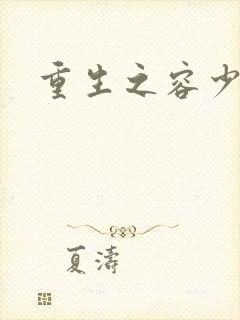 重生之容少
夏涛